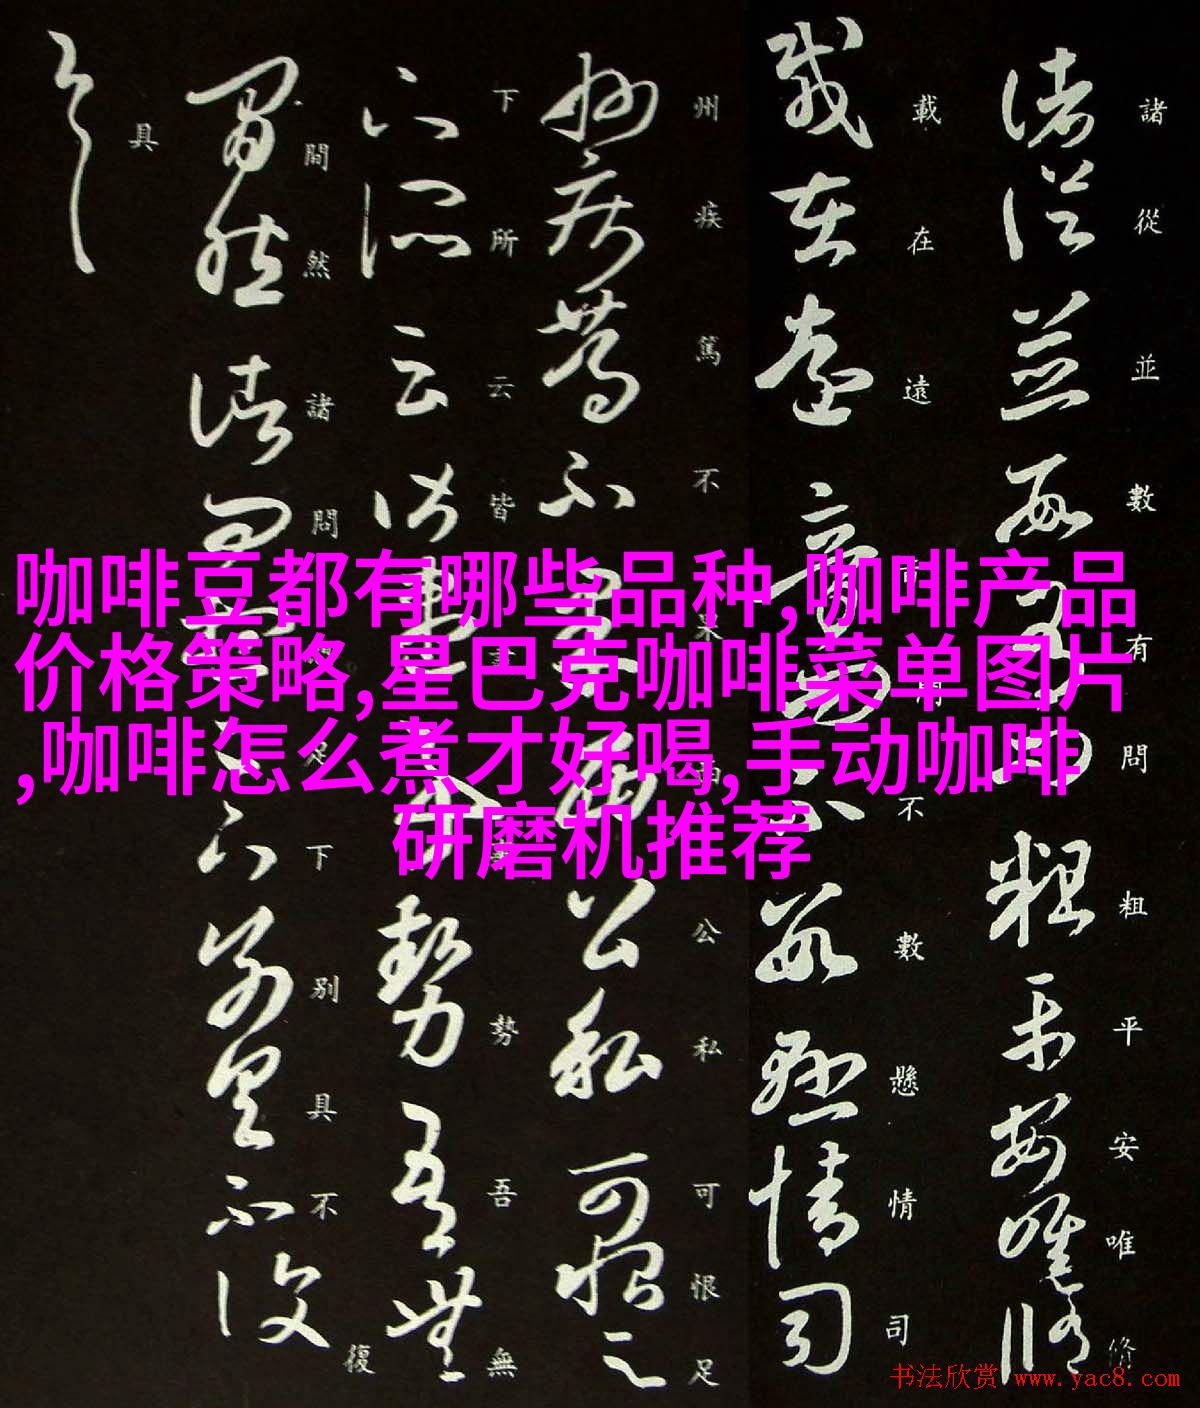 諸從並數有問粗平安唯修
載在遠音問不數懸情司
州疾篤不果西公私可恨足
下所云皆盡事勢吾無
間然諸問想足下別具不復
具
咖啡豆都有哪些品种,咖啡产品
价格策略,星巴克咖啡菜单图片
,咖啡怎么煮才好喝,手动咖啡
研磨机推荐
书法欣赏 www.yac8.com